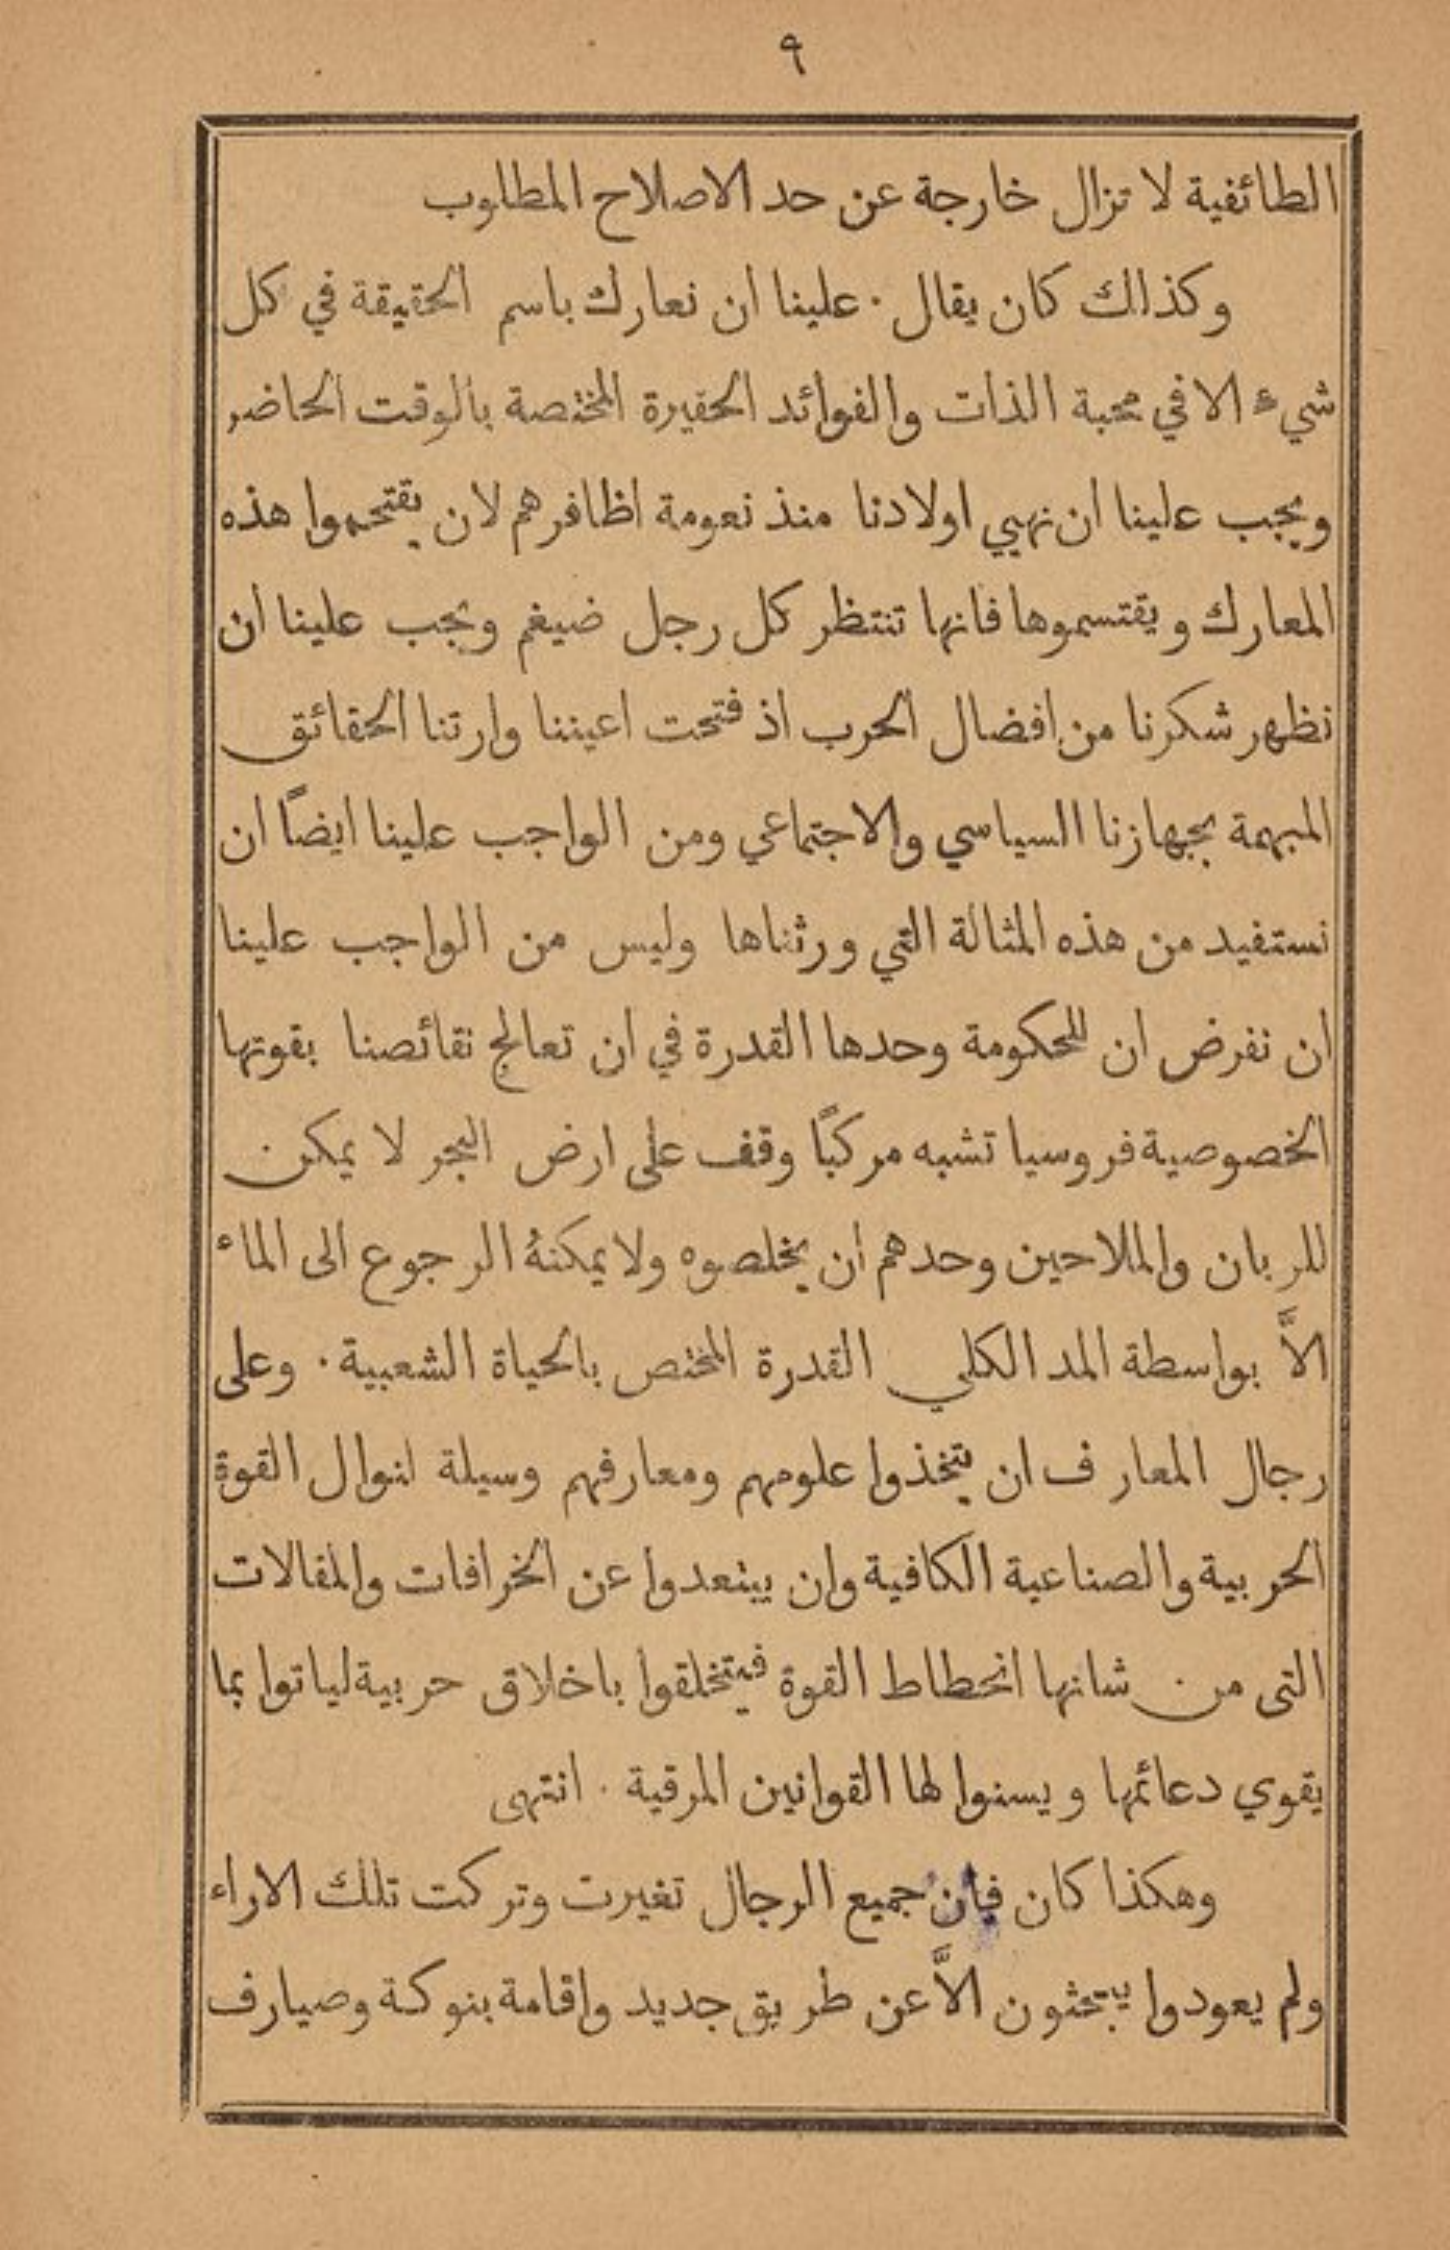 ٩
الطائفية لا تزال خارجة عن حد الاصلاح المطلوب
وكذالك كان يقال · علينا ان نعارك باسم الحقيقة في كل
شيء الا في محبة الذات والفوائد الحقيرة المختصة بالوقت الحاضر
ويجب علينا ان نهيي اولادنا منذ نعومة اظافرهم لان يقتحموا هذه
المعارك ويقتسموها فانها تنتظر كل رجل ضيغم ويجب علينا ان
نظهر شكرنا من افضال الحرب اذ فتحت اعيننا وارتنا الحقائق
المبهمة بجهازنا السياسي والاجتماعي ومن الواجب علينا ايضاً ان
نستفيد من هذه المثالة التي ورثناها وليس من الواجب علينا
ان نفرض ان للحكومة وحدها القدرة في ان تعالج نقائصنا بقوتها
الخصوصية فروسيا تشبه مركباً وقف على ارض البحر لا يمكن
للربان والملاحين وحدهم ان يخلصوه ولا يمكنهُ الرجوع الى الماء
الاَّ بواسطة المد الكلي القدرة المختص بالحياة الشعبية · وعلى
رجال المعارف ان يتخذوا علومهم ومعارفهم وسيلة لنوال القوة
الحربية والصناعية الكافية وان يبتعدوا عن الخرافات والمقالات
التى من شانها انحطاط القوة فيتخلقوا باخلاق حربية لياتوا بما
يقوي دعائمها ويسنوا لها القوانين المرقية · انتهى
وهكذا كان فان جميع الرجال تغيرت وتركت تلك الاراء
ولم يعودوا يبحثون الاَّ عن طريق جديد واقامة بنوكة وصيارف